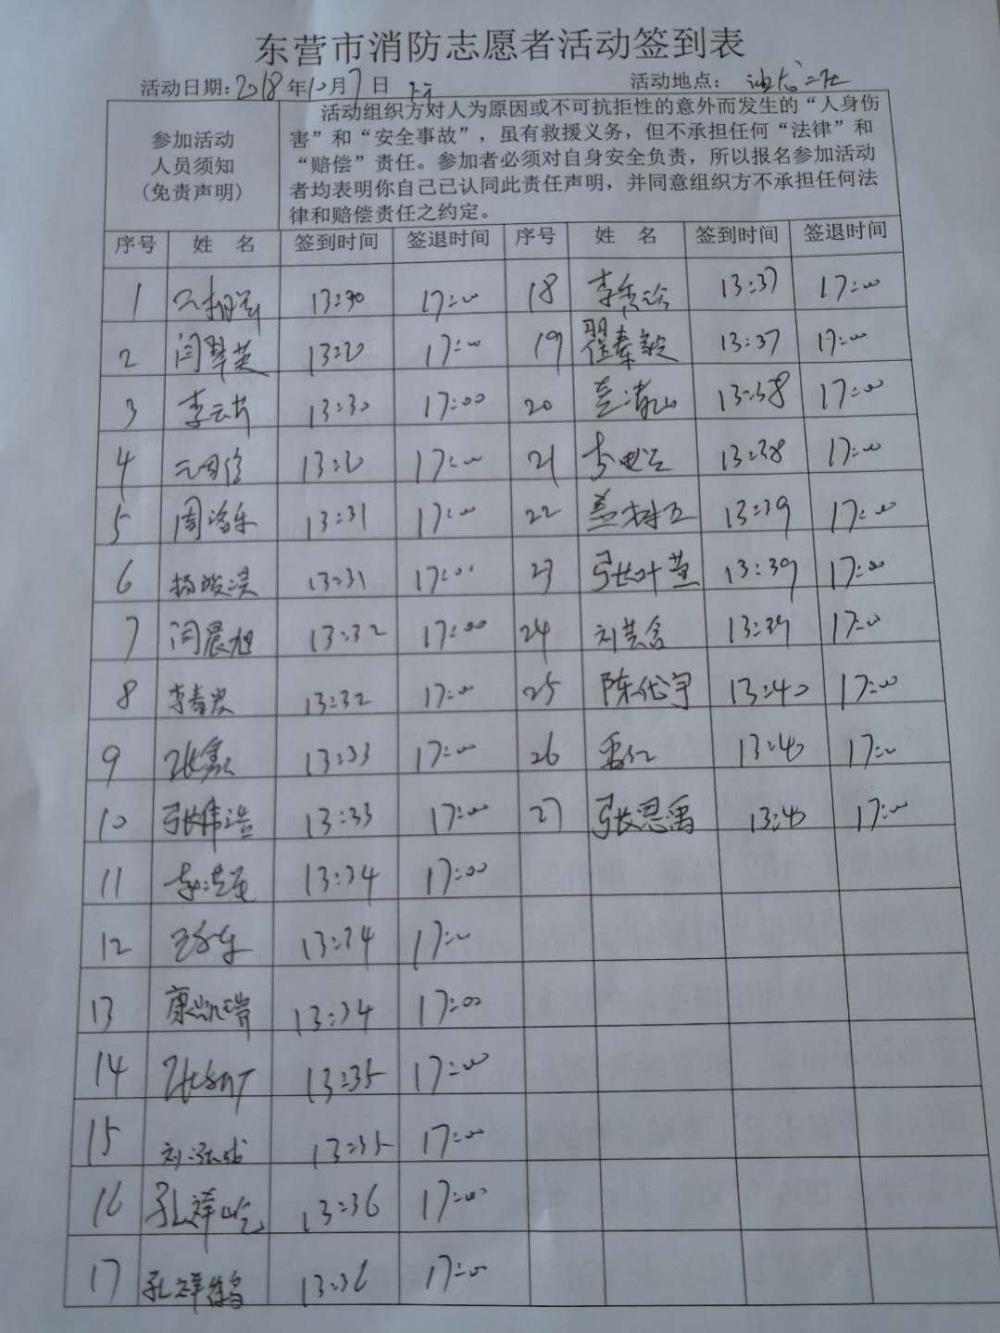 东营市消防志愿者活动签到表
活动日期:2018年10月7日 活动地点:
参加活动
人员须知
(免责声明)
活动组织方对人为原因或不可抗拒性的意外而发生的“人身伤
害”和“安全事故”,虽有救援义务,但不承担任何“法律”和
“赔偿”责任。参加者必须对自身安全负责,所以报名参加活动
者均表明你自己已认同此责任声明,并同意组织方不承担任何法
律和赔偿责任之约定。
序号 姓名 签到时间 签退时间 序号 姓名 签到时间 签退时间
1 13:30 17:00 18 13:37 17:00
2 闫翠英 13:30 17:00 19 翟秦毅 13:37 17:00
3 李云芳 13:30 17:00 20 13:38 17:00
4 13:30 17:00 21 13:38 17:00
5 周海乐 13:31 17:00 22 盖树五 13:39 17:00
6 13:31 17:00 23 张叶莲 13:39 17:00
7 闫晨旭 13:32 17:00 24 刘芸含 13:39 17:00
8 李春岩 13:32 17:00 25 陈代宇 13:40 17:00
9 13:33 17:00 26 13:40 17:00
10 张伟浩 13:33 17:00 27 张恩禹 13:40 17:00
11 13:34 17:00
12 13:34 17:00
13 康凯瑞 13:34 17:00
14 13:35 17:00
15 13:35 17:00
16 孔祥屹 13:36 17:00
17 孔祥鹤 13:36 17:00